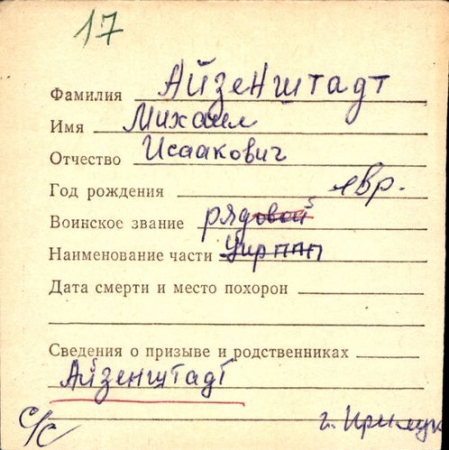 17
Фамилия Айзенштадт
Имя Михаил
Отчество Исаакович
Год рождения евр.
Воинское звание рядовой
Наименование части
Дата смерти и место похорон
Сведения о призыве и родственниках
Айзенштадт
с/с г.